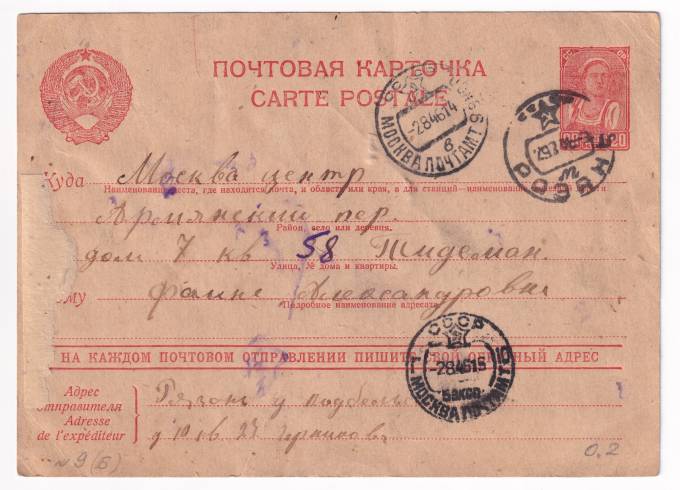 ПОЧТОВАЯ КАРТОЧКА
CARTE POSTALE
СССР МОСКВА
-2 8 46 14
МОСКВА ПОЧТАМТ 9
в
20
СССР
Куда Москва центр
Наименование места, где находится почта, и области или края, а для станций—наименование
Армянский пер.
Район, село или деревня.
дом 7 кв 58 Тидеман.
Улица, № дома и квартиры.
ому Фаине Александровне
Подробное наименование адресата
НА КАЖДОМ ПОЧТОВОМ ОТПРАВЛЕНИИ ПИШИТЕ СВОЙ АДРЕС
СССР
-2 8 46 15
МОСКВА ПОЧТАМТ
Адрес
отправителя
Adresse
de l'expéditeur
Рязань у
д 10 кв 23
№ 9 (б)
0,2